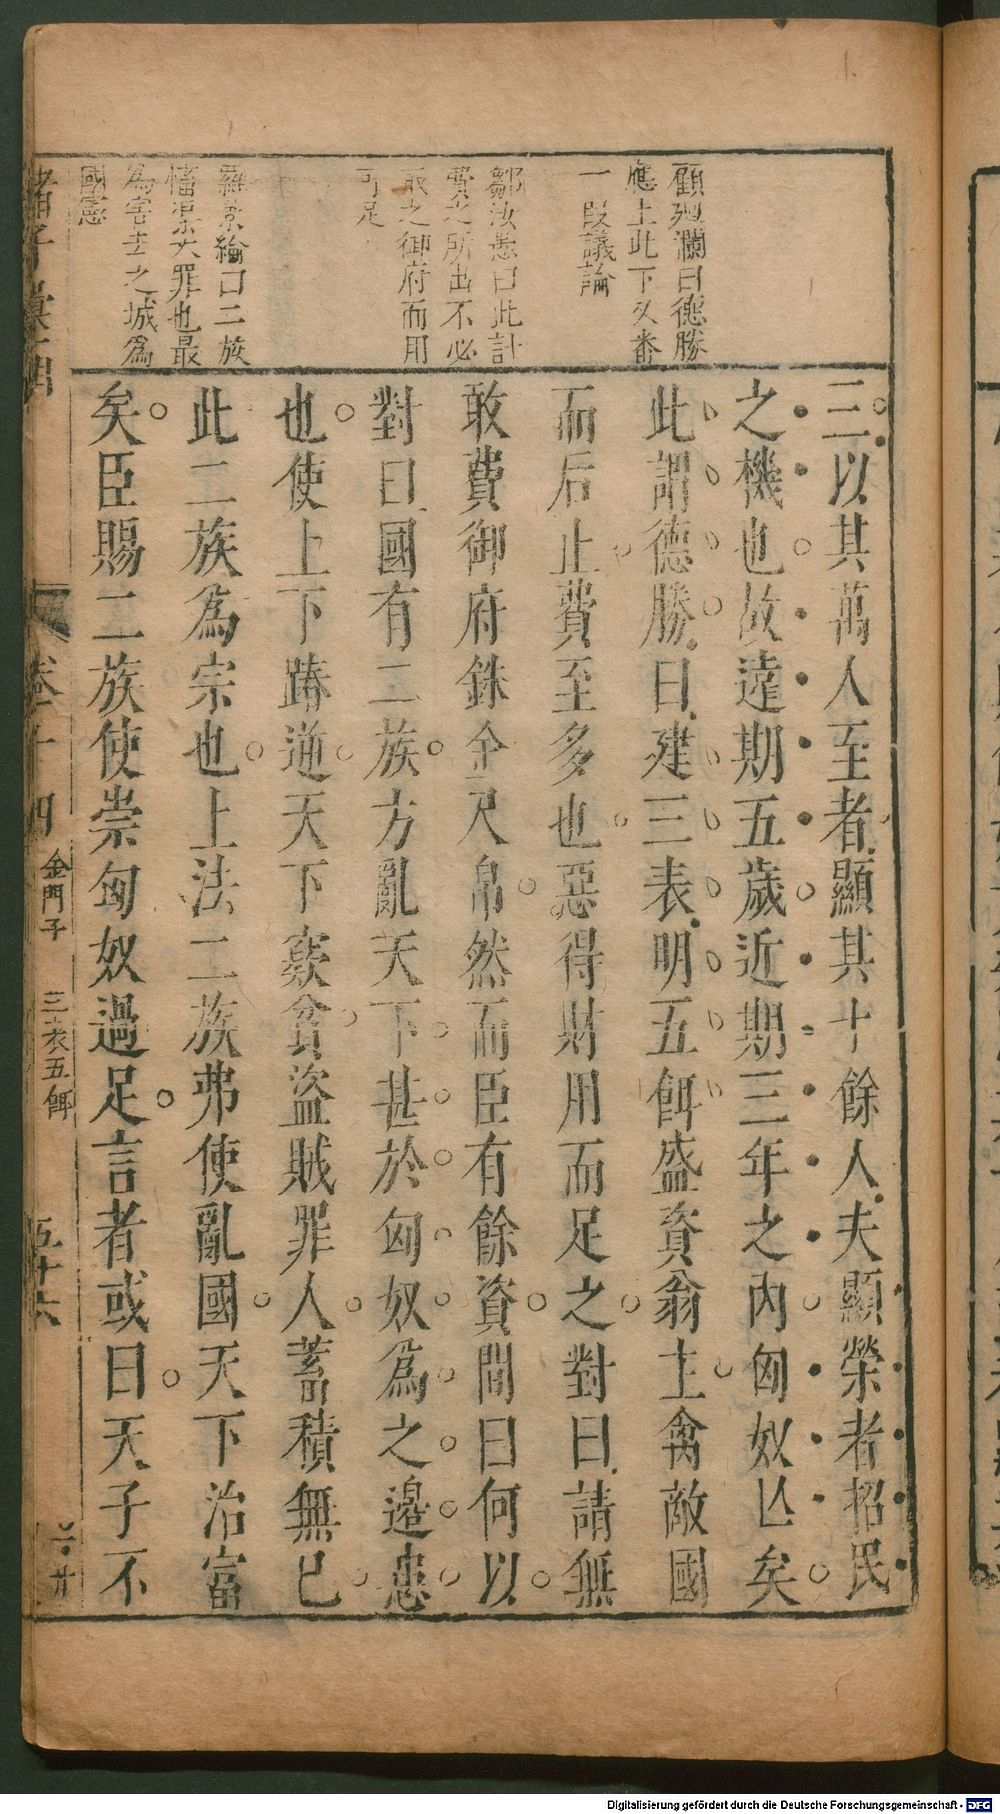 顧迴瀾曰德勝
應上此下又番
一段議論
鄒汝愚曰此計
費之所出不必
取之御府而用
可足
羅景綸曰二族
為害去之城爲
國憲
三以其萬人至者顯其十餘人夫顯榮者招民
之機也故遠期五歲近期三年之內匈奴亾矣
此謂德勝曰建三表明五餌盛資翁主禽敵國
而后止費至多也惡得財用而足之對曰請無
敢費御府銖金尺帛然而臣有餘資問曰何以
對曰國有二族方亂天下甚於匈奴爲之邊患
也使上下踳逆天下窾貧盜賊罪人蓄積無已
此二族爲宗也上法二族弗使亂國天下治富
矣臣賜二族使崇匈奴過足言者或曰天子不
諸子彙函
卷十四
金門子
三表五餌
五十六